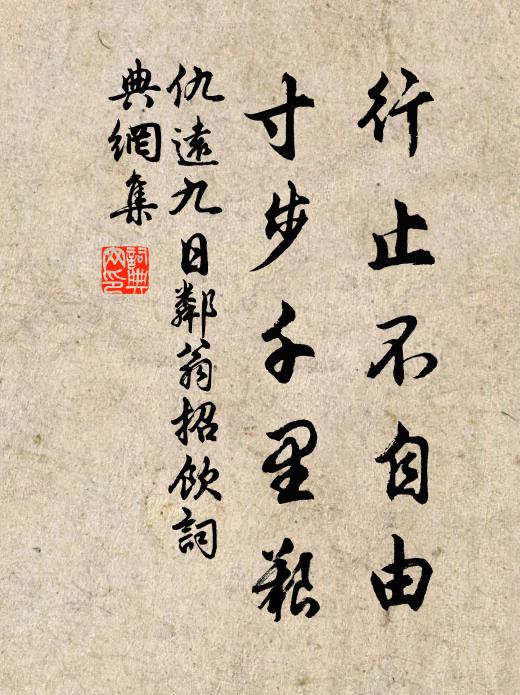 行止不自由
寸步千里艱
仇遠九日鄰翁招飲詞
典網集
詞典
网印